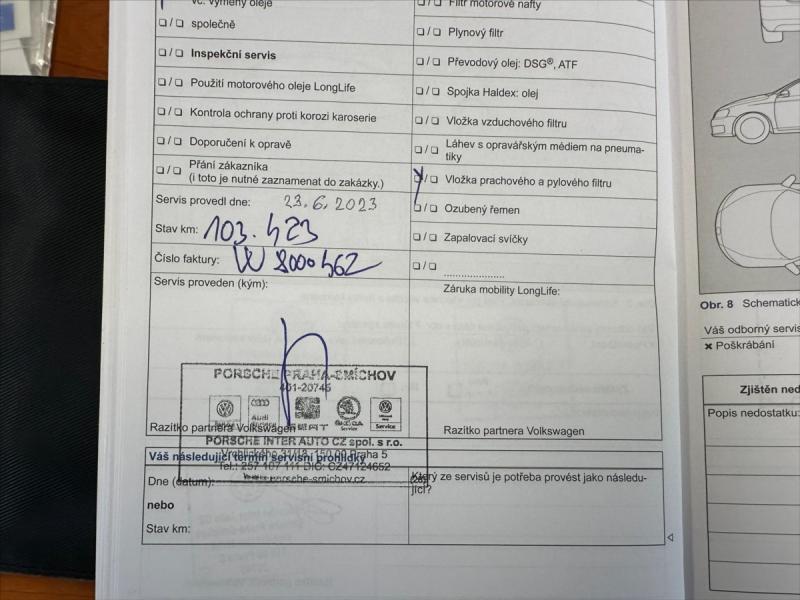 vč. výměny oleje
❑ / ❑ společně
❑ / ❑ Inspekční servis
❑ / ❑ Použití motorového oleje LongLife
❑ / ❑ Kontrola ochrany proti korozi karoserie
❑ / ❑ Doporučení k opravě
❑ / ❑ Přání zákazníka
(i toto je nutné zaznamenat do zakázky.)
Servis provedl dne: 23.6.2023
Stav km: 103.423
Číslo faktury: W 8000462
Servis proveden (kým):
PORSCHE PRAHA-SMÍCHOV
401-20745
Audi
SEAT
ŠKODA
Service
Service
Razítko partnera Volkswagen
PORSCHE INTER AUTO CZ spol. s r.o.
Vrchlického 31/18, 150 00 Praha 5
Tel.: 257 107 111 DIČ: CZ47124652
www.porsche-smichov.cz
❑ / ❑ Filtr motorové nafty
❑ / ❑ Plynový filtr
❑ / ❑ Převodový olej: DSG®, ATF
❑ / ❑ Spojka Haldex: olej
❑ / ❑ Vložka vzduchového filtru
❑ / ❑ Láhev s opravářským médiem na pneuma-
tiky
❑ / ❑ Vložka prachového a pylového filtru
❑ / ❑ Ozubený řemen
❑ / ❑ Zapalovací svíčky
❑ / ❑ ......................
Záruka mobility LongLife:
Razítko partnera Volkswagen
Váš následující termín servisní prohlídky
Dne (datum):
nebo
Stav km:
Který ze servisů je potřeba provést jako následu-
jící?
Obr. 8 Schematick
Váš odborný servis
✖ Poškrábání
Zjištěn ned
Popis nedostatku: